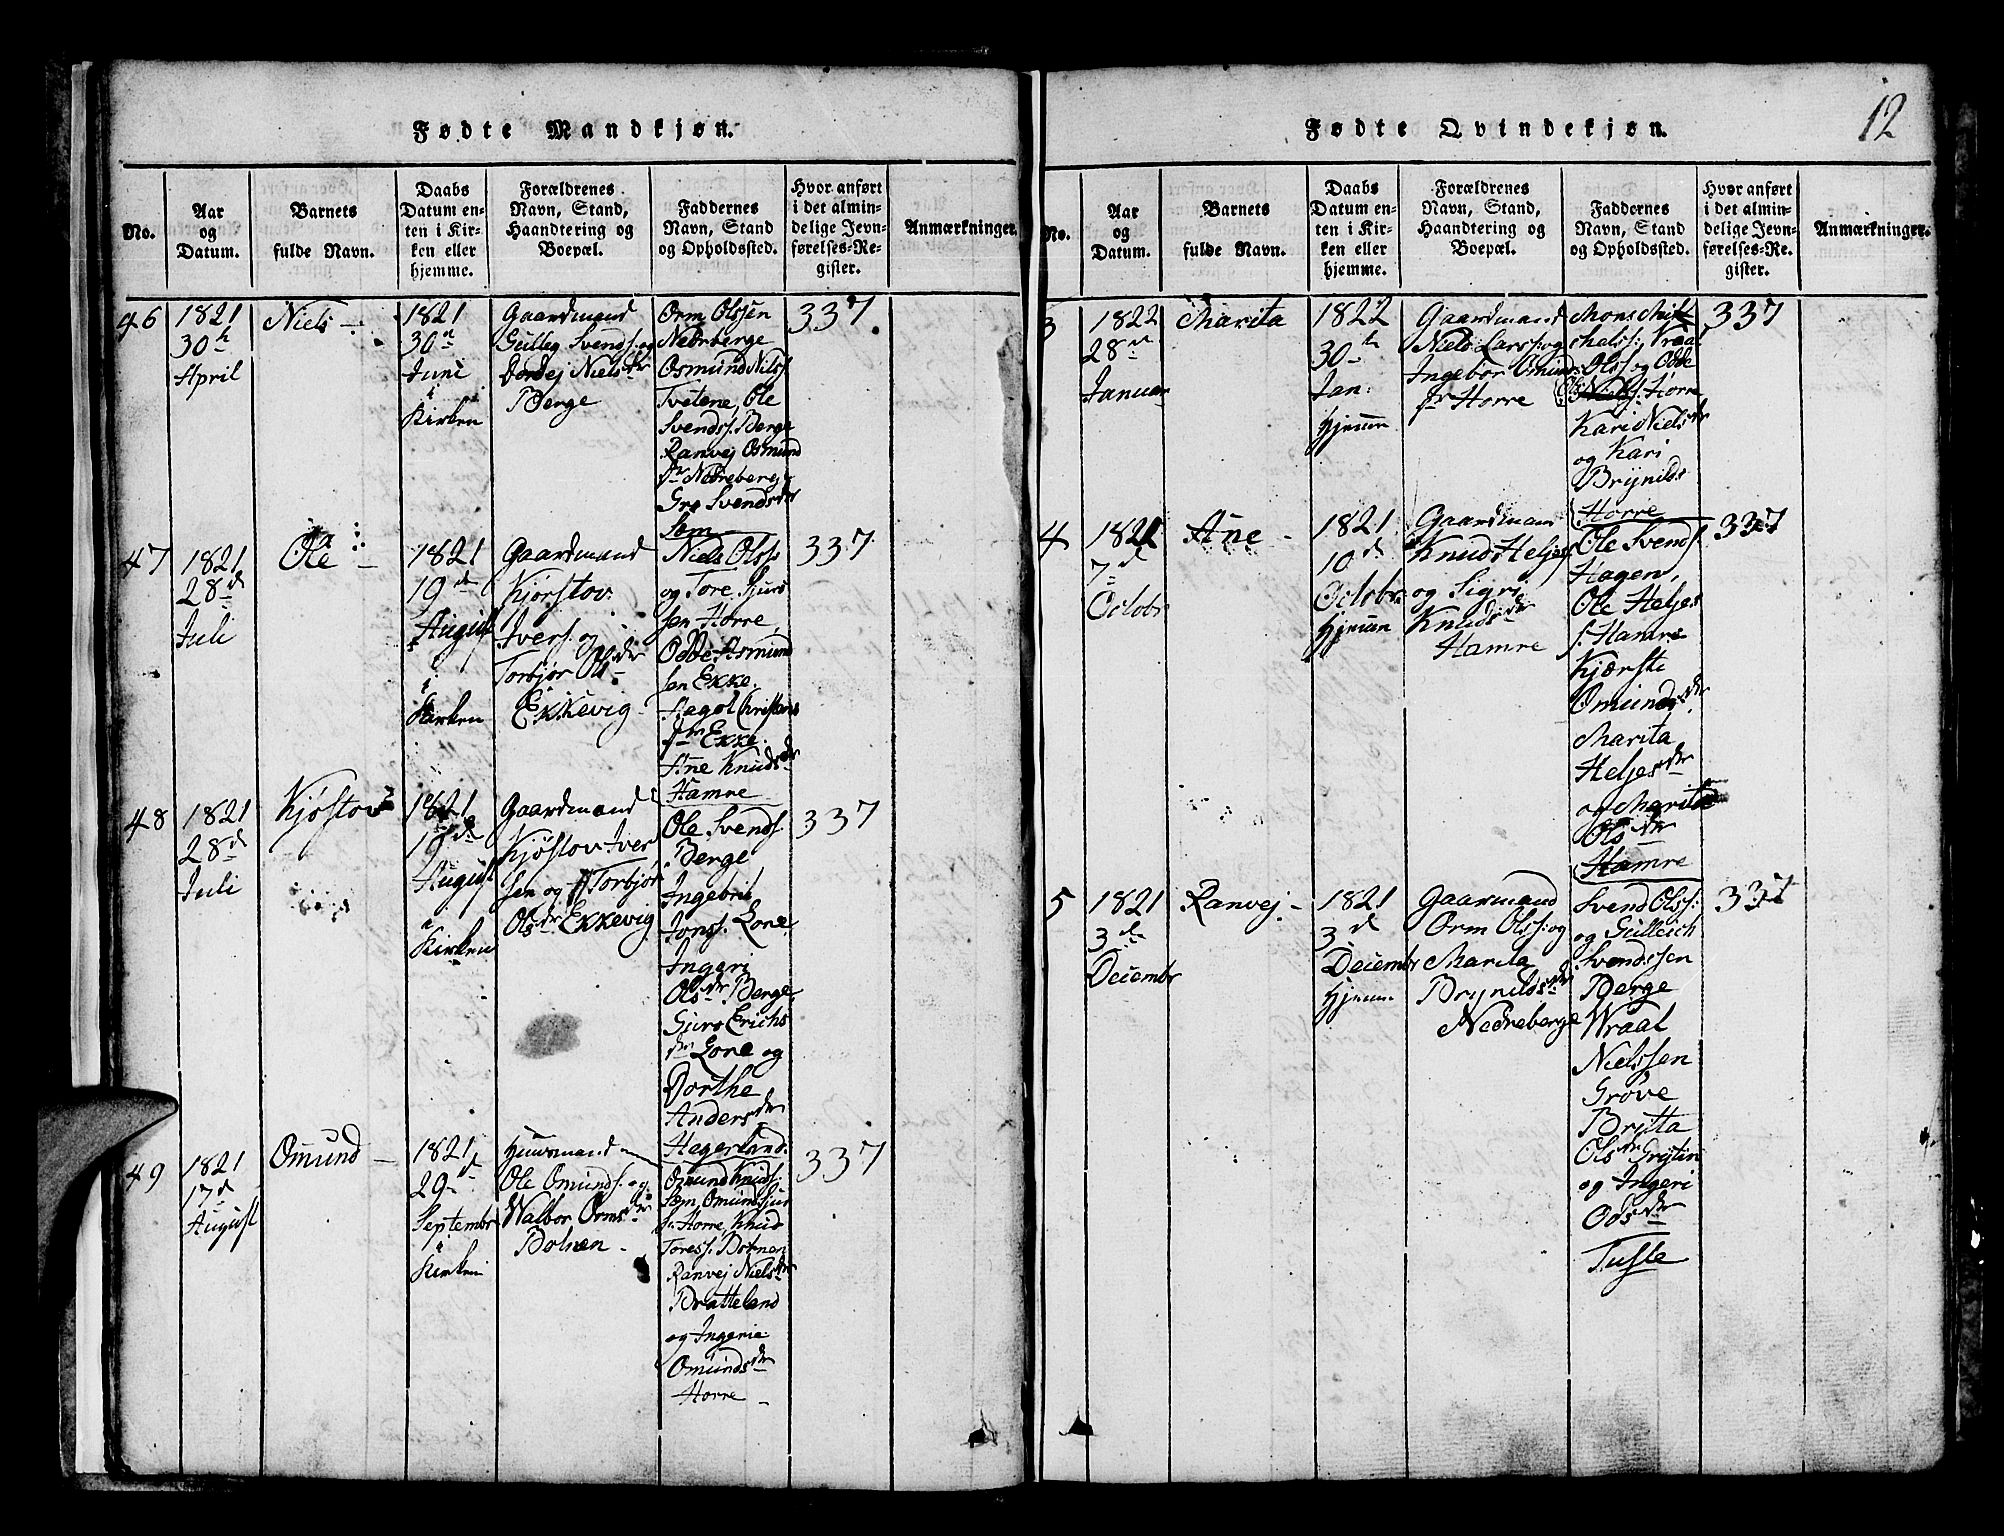 12
Fødte Mandkjøn.
No.
Aar og Datum.
Barnets fulde Navn.
Daabs Datum enten i Kirken eller hjemme.
Forældrenes Navn, Stand, Haandtering og Boepæl.
Faddernes Navn, Stand og Opholdssted.
Hvor anført i det almindelige Jevnførelses-Register.
Anmærkninger.
46
1821
30te
April
Niels
1821
30te
Juni
i
Kirken
Gaardmand
Gulleg Svends. og
Dordej Nielsdr
Berge
Orm Olssen
Nedrberge
Osmund Nilss.
Tvetene, Ole
Svends. Berge
Ranvej Osmund
dr Nedreberg
Gro Svendsdr
Sem
337
47
1821
28de
Juli
Ole
1821
19de
August
i
Kirken
Gaardmand
Kjørstov
Ivers. og
Torbjør Olsdr
Ekkevig
Niels Olss.
og Tore Sjurs
sen Horre
Odde Asmund
sen Ekke.
Aagot Christens
dr Ekke.
Ane Knudsdr
Hamre
337
48
1821
28de
Juli
Kjøstov
1821
19de
August
i
Kirken
Gaardmand
Kjøstov Iver
sen og Torbjør
Olsdr Ekkevig
Ole Svends.
Berge
Ingebrit
Jonss. Lone
Ingeri
Olsdr Berge
Guro Erichs
dr Lone og
Dorthe
Andersdr
Hegerland.
337
49
1821
17de
August
Omund
1821
29de
Septembr
i
Kirken
Huusmand
Ole Omunds. og
Walbor Ormsdr
Botnen
Omund Knuds.
Sem, Omund Sjur
s. Horre, Knud
Toress. Botnen
Ranvej Nielsdr
Bratteland
og Ingerie
Omundsdr
Horre
337
Fødte Qvindekjøn.
No.
Aar og Datum.
Barnets fulde Navn.
Daabs Datum enten i Kirken eller hjemme.
Forældrenes Navn, Stand, Haandtering og Boepæl.
Faddernes Navn, Stand og Opholdssted.
Hvor anført i det almindelige Jevnførelses-Register.
Anmærkninger.
3
1822
28de
Januar
Marita
1822
30te
Jan:
Hjemme
Gaardmand
Niels Larss: og
Ingebor Omunds
dr Horre
Mons Mik
kels: Vraal
Olss og Odde
Horre
Kari Nielsdr
og Kari
Brynilds
Horre
337
4
1821
7de
Octobr
Ane
1821
10de
Octobr
Hjemme
Gaardmand
Knud Heljes
og Sigri
Knudsdr
Hamre
Ole Svends.
Hagen,
Ole Heljes
s. Hamre
Kjærste
Omundsdr
Marita
Heljesdr
og Marita
Olsdr
Hamre
337
5
1821
3de
Decembr
Ranvej
1821
3de
Decembr
Hjemme
Gaarmand
Orm Olss: og
Marita
Brynildsdr
Nedreberge
Svend Olss:
og Gulleich
Svendssen
Berge
Wraal
Nielssen
Grøve
Brytta
Olsdr Gryting
og Ingeri
Odsdr
Tufte
337